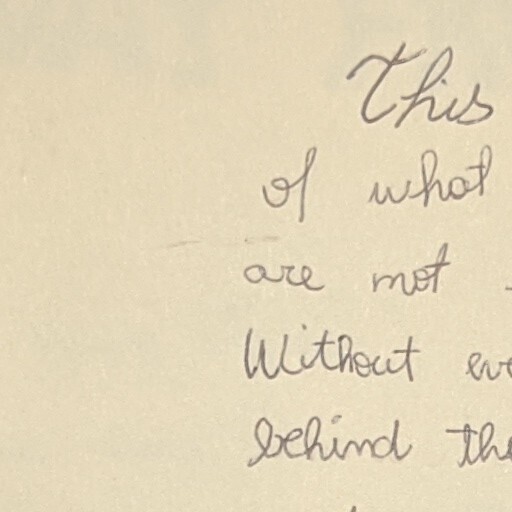 This
of what
are not
Without
behind